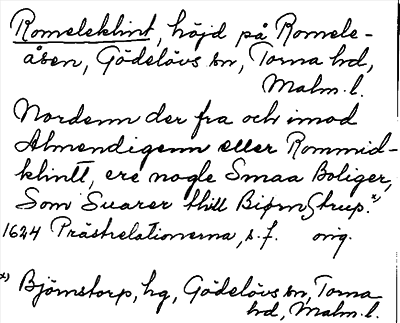 Romeleklint, höjd på Romele-
åsen, Gödelövs sn, Torna hd,
Malm. l.
Nordenn der fra och imod
Almendigenn eller Rommid-
klintt, ere nogle Smaa Boliger,
Som Suarer thill Biørnstrup.x)
1624 Prästrelationerna, s.f. orig.
x) Björnstorp, hg, Gödelövs sn, Torna
hd, Malm. l.